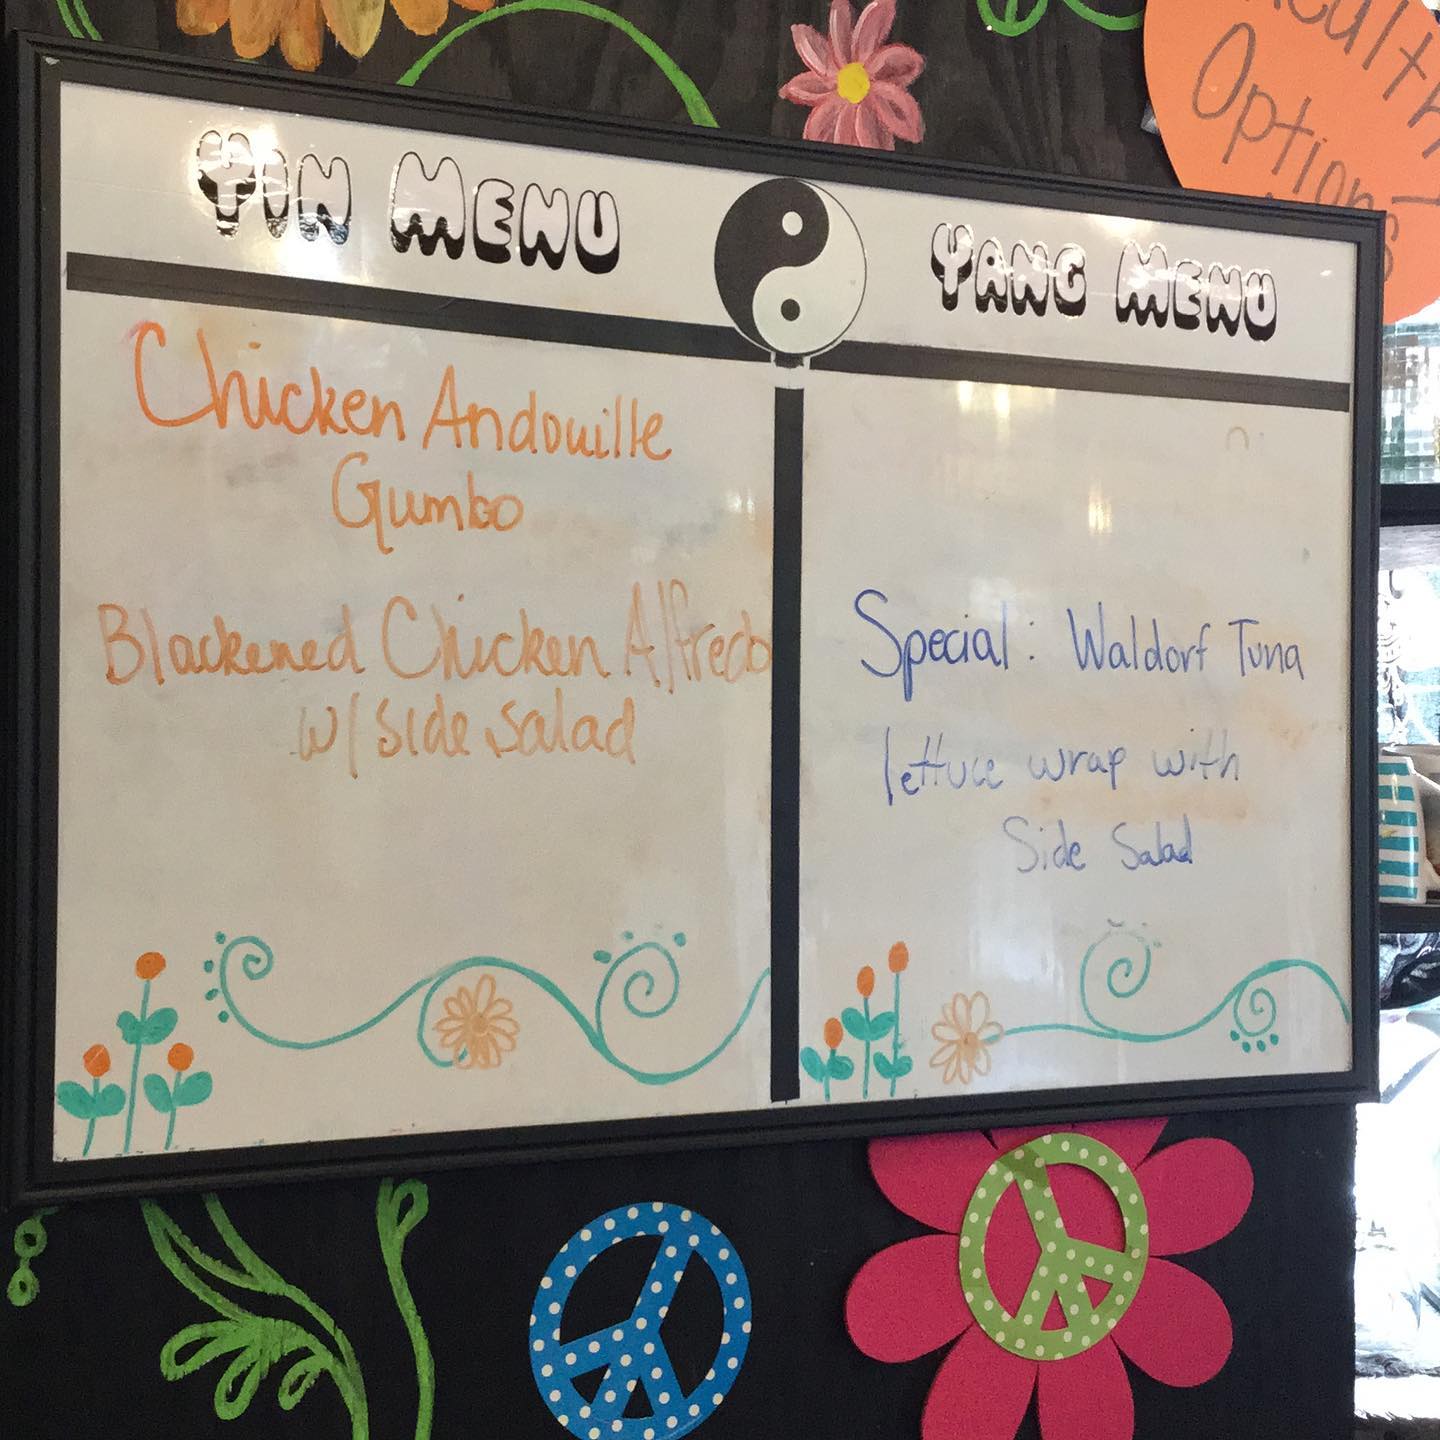 Yin Menu
Yang Menu
Chicken Andouille
Gumbo
Blackened Chicken Alfredo
w/ side salad
Special: Waldorf Tuna
lettuce wrap with
Side Salad
Options